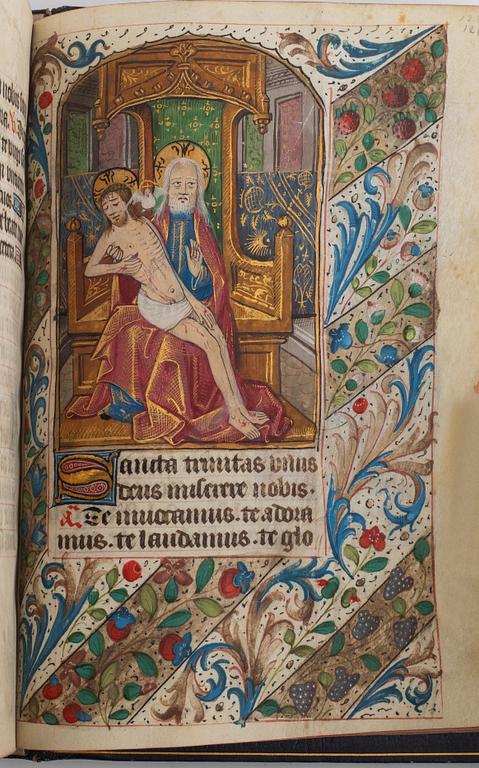 Sancta trinitas unus
deus miserere nobis.
Te invocamus. te adora
mus. te laudamus. te glo